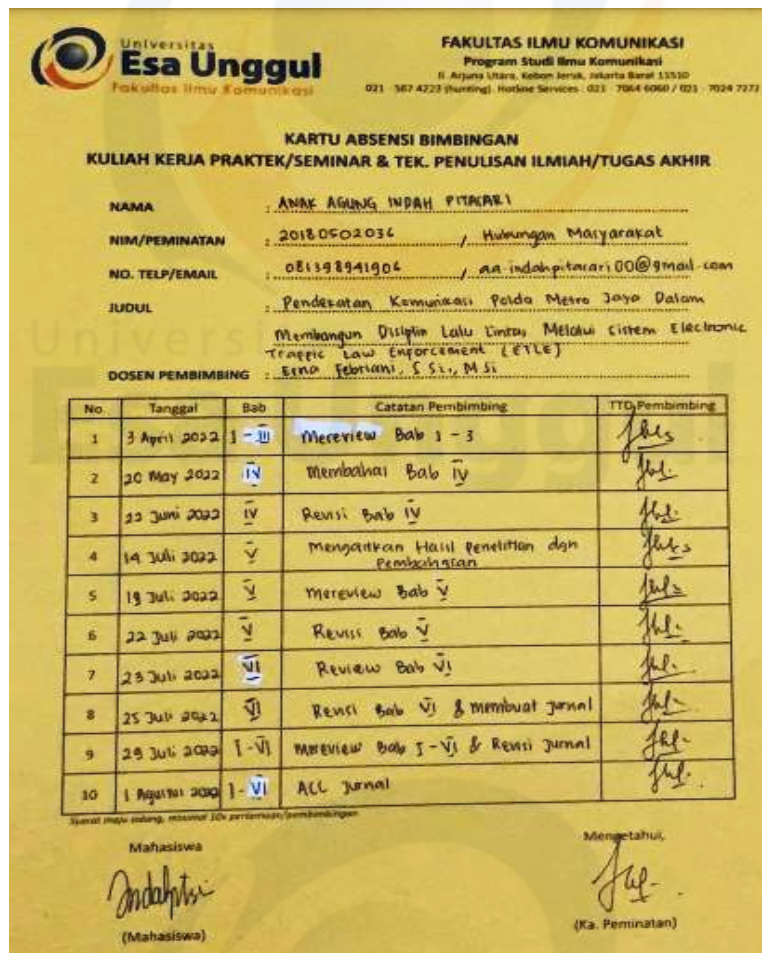 Universitas
Esa Unggul
Fakultas Ilmu Komunikasi
FAKULTAS ILMU KOMUNIKASI
Program Studi Ilmu Komunikasi
Jl. Arjuna Utara, Kebon Jeruk, Jakarta Barat 11510
021 - 567 4223 (hunting). Hotline Services : 021 - 7064 6060 / 021 - 7024 7272
KARTU ABSENSI BIMBINGAN
KULIAH KERJA PRAKTEK/SEMINAR & TEK. PENULISAN ILMIAH/TUGAS AKHIR
NAMA : ANAK AGUNG INDAH PITACARI
NIM/PEMINATAN : 20180502036 / Hubungan Masyarakat
NO. TELP/EMAIL : 081398941906 / aa.indahpitacari00@gmail.com
JUDUL : Pendekatan Komunikasi Polda Metro Jaya Dalam
Membangun Disiplin Lalu Lintas Melalui Sistem Electronic
Traffic Law Enforcement (ETLE)
DOSEN PEMBIMBING : Erna Febriani, S.Si., M.Si
No. Tanggal Bab Catatan Pembimbing TTD Pembimbing
1 3 April 2022 I - III Mereview Bab 1 - 3
2 20 May 2022 IV Membahas Bab IV
3 22 Juni 2022 IV Revisi Bab IV
4 14 Juli 2022 V Mengaitkan Hasil Penelitian dgn
Pembahasan
5 19 Juli 2022 V Mereview Bab V
6 22 Juli 2022 V Revisi Bab V
7 23 Juli 2022 VI Review Bab VI
8 25 Juli 2022 VI Revisi Bab VI & membuat jurnal
9 29 Juli 2022 I - VI Mereview Bab I - VI & Revisi Jurnal
10 1 Agustus 2022 I - VI ACC Jurnal
Syarat maju sidang, minimal 10x pertemuan/pembimbingan
Mahasiswa
Mengetahui,
(Mahasiswa)
(Ka. Peminatan)